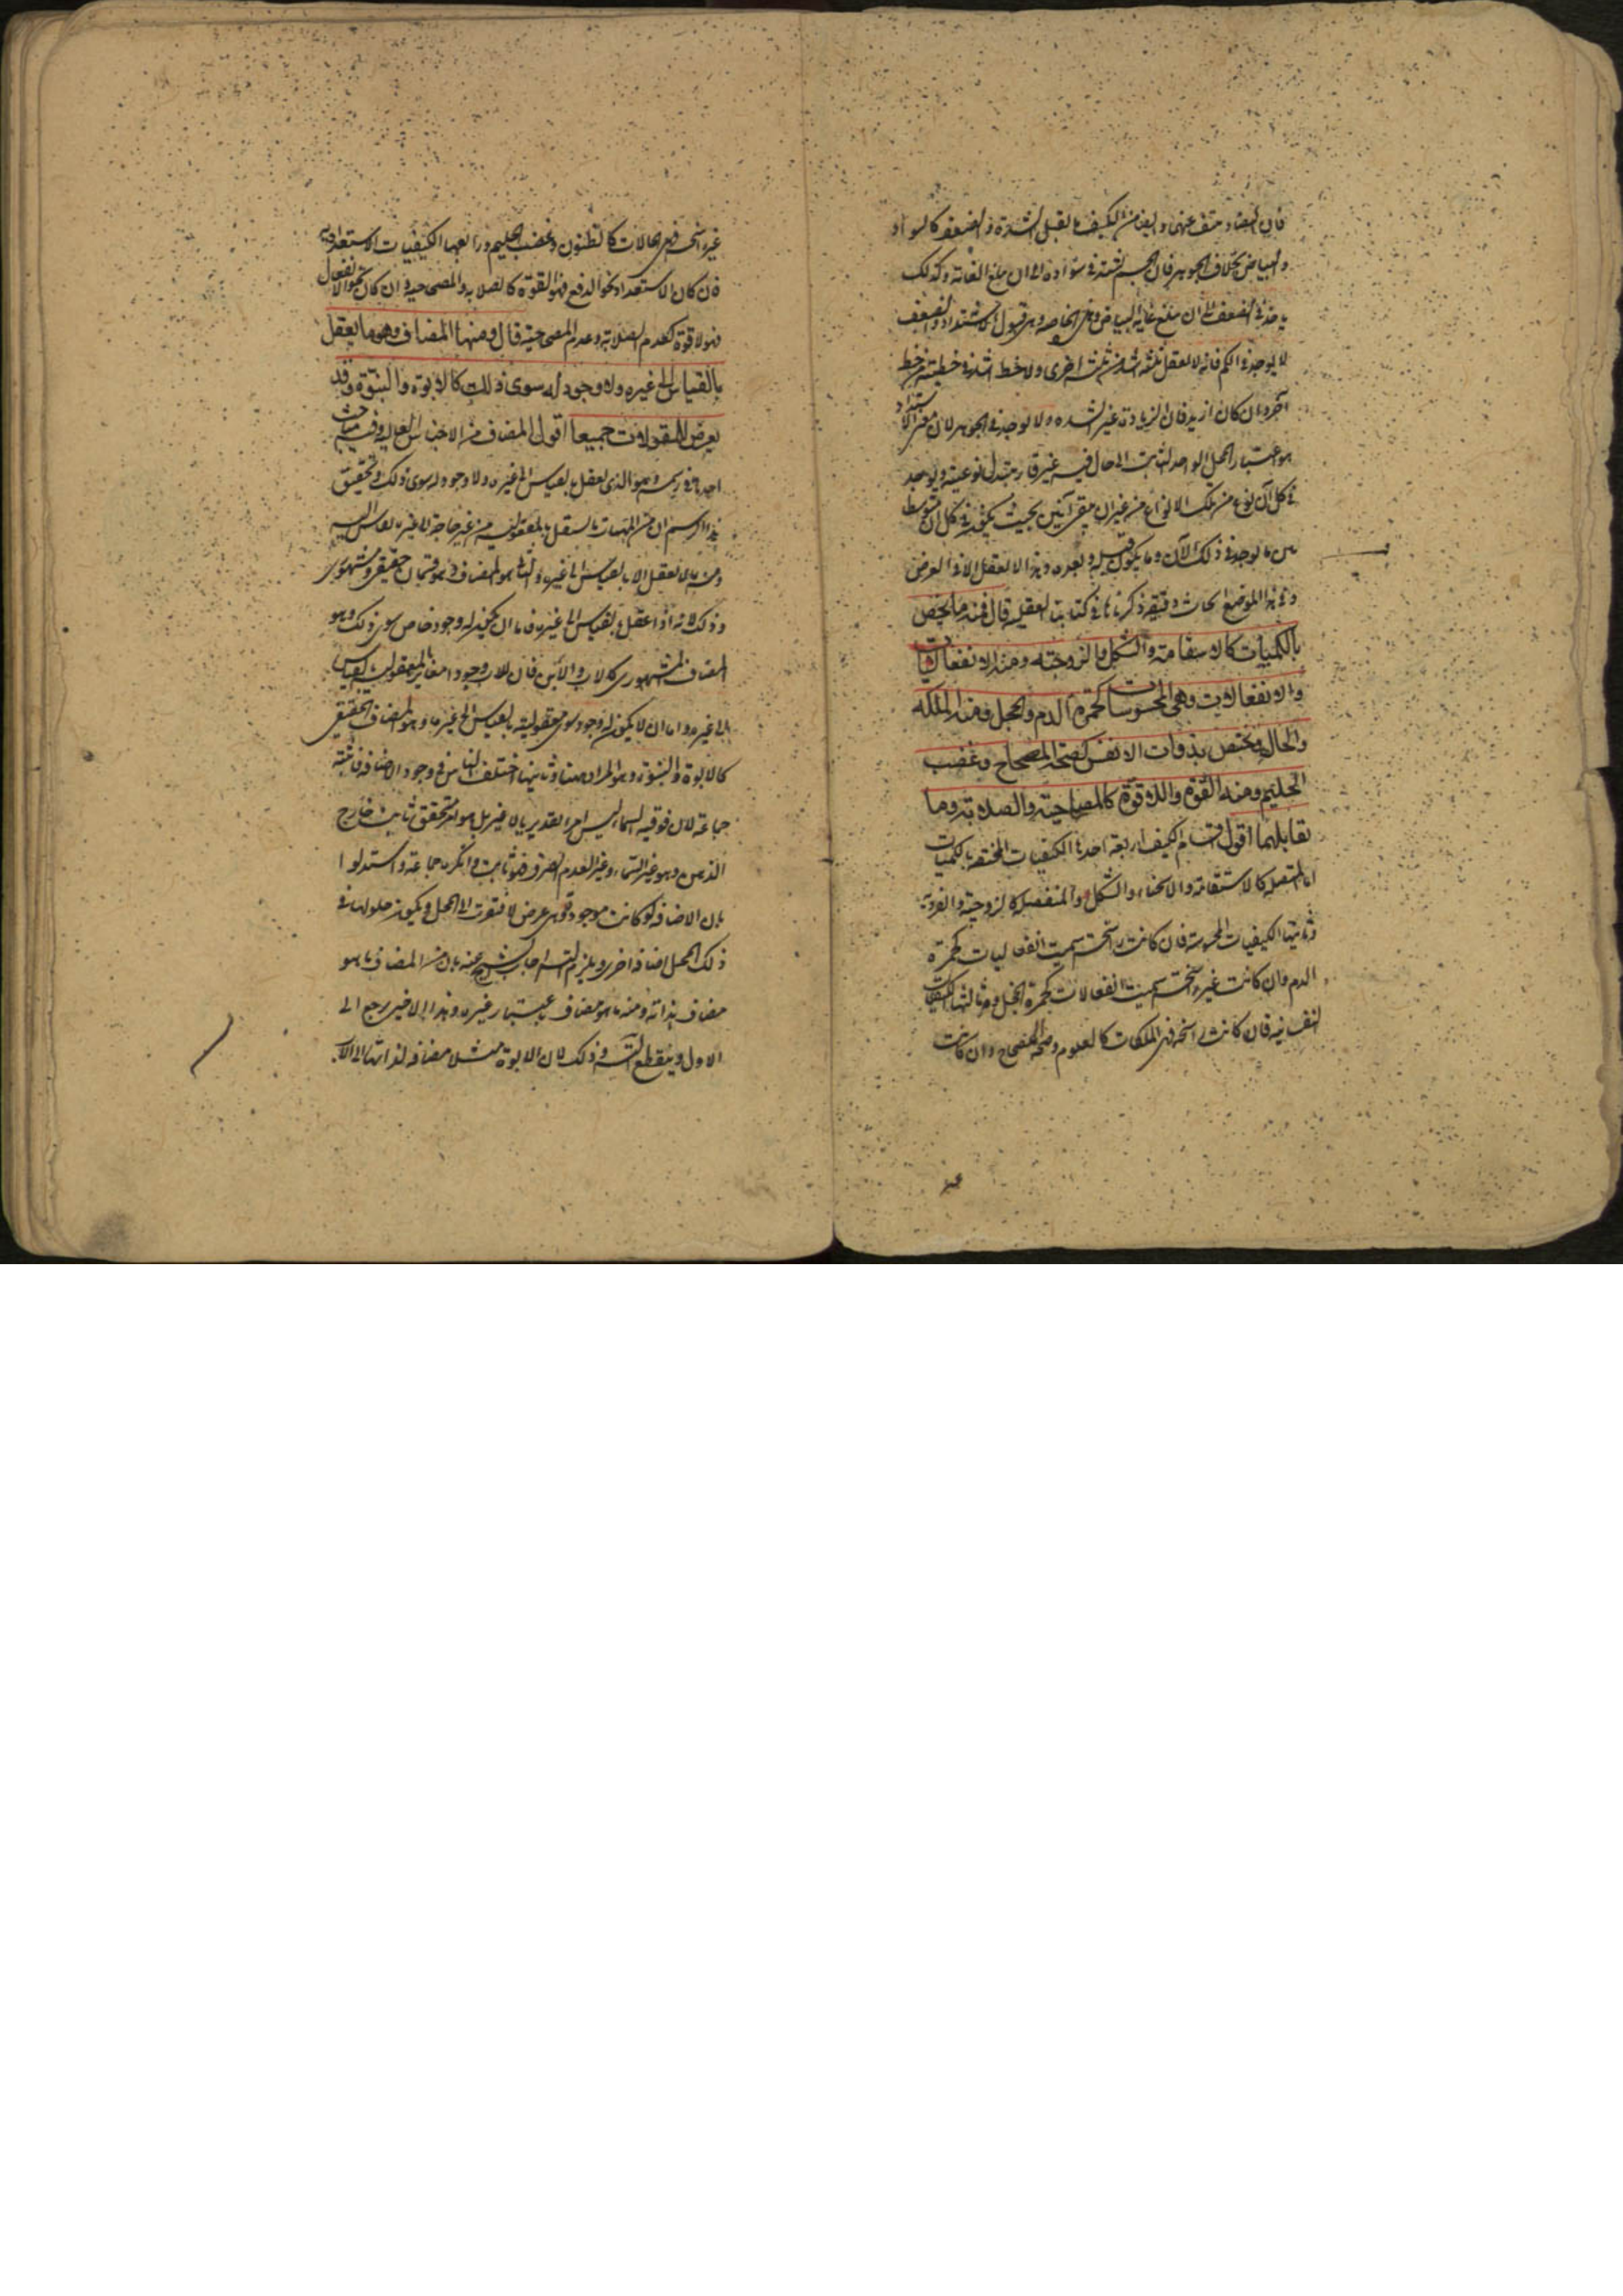 فان التضاد منتف عنهما وايضا من الكيف ما يقبل الشدة والضعف كالسواد
والبياض بخلاف الجوهر فان الجسم يشتد في سواده الى ان يبلغ الغاية وكذلك
ياخذ في الضعف الى ان يبلغ غاية البياض وهي الخاصة وهي قبول الاشتداد والضعف
لا يوجد في الكم فانه لا يعقل ثلثة اشد من ثلثة اخرى ولا خط اشد في خطيته من خط
آخر وان كان ازيد فان الزيادة غير الشدة ولا يوجد في الجوهر لان معنى الاشتداد
هو اعتبار المحل الواحد الثابت الى حال فيه غير قار يتبدل نوعيته ويوجد
في كل آن نوع من تلك الانواع من غير ان يبقى آنين بحيث يكون في كل آن متوسطا
بين ما يوجد في ذلك الآن وما يكون قبله وبعده وهذا لا يعقل الا في العرض
وفي هذا الموضع ابحاث دقيقة ذكرناها في كتابنا العقلية قال فمنه ما يختص
بالكميات كالاستقامة والشكل والزوجية ومنه الانفعاليات
والانفعالات وهي المحسوسات كحمرة الدم والخجل ومنه الملكة
والحال ويختص بذوات الانفس كصحة المصحاح وغضب
الحليم ومنه القوة واللاقوة كالمصحاحية والصلابة وما
يقابلهما اقول اقسام الكيف اربعة احدها الكيفيات المختصة بالكميات
اما المتصلة كالاستقامة والانحناء والشكل او المنفصلة كالزوجية والفردية
وثانيها الكيفيات المحسوسة فان كانت راسخة سميت انفعاليات كحمرة
الدم وان كانت غير راسخة سميت انفعالات كحمرة الخجل وثالثها الكيفيات
النفسانية فان كانت راسخة فهي الملكات كالعلوم وصحة المصحاح وان كانت
غير راسخة فهي الحالات كالظنون وغضب الحليم ورابعها الكيفيات الاستعدادية
فان كان الاستعداد نحو الدفع فهو القوة كالصلابة والمصحاحية وان كان نحو الانفعال
فهو لا قوة كعدم الصلابة وعدم المصحاحية قال ومنها المضاف وهو ما يعقل
بالقياس الى غيره ولا وجود له سوى ذلك كالابوة والبنوة وقد
يعرض للمقولات جميعا اقول المضاف من الاجناس العالية وفيه مباحث
احدها في رسمه وهو الذي يعقل بالقياس الى غيره ولا وجود له سوى ذلك وتحقيق
هذا الرسم ان من المهيات ما يستقل بالمعقولية من غير حاجة الى غير بالقياس اليه
ومنه ما لا يعقل الا بالقياس الى غيره والثاني هو المضاف وهو قسمان حقيقي ومشهوري
وذلك لانه اذا عقل بالقياس الى غيره فاما ان يكون له وجود خاص سوى ذلك وهو
المضاف المشهوري كالاب والابن فان للاب وجودا مغايرا لمعقوليته بالقياس
الى غيره واما ان لا يكون له وجود سوى معقوليته بالقياس الى غيره وهو المضاف الحقيقي
كالابوة والبنوة وهو المراد ههنا وثانيها اختلف الناس في وجود الاضافة فاثبته
جماعة لان فوقية السماء ليس امرا تقديريا لا غير بل هو امر متحقق ثابت خارج
الذهن وهو غير السماء وغير العدم الصرف فهو ثابت وانكره جماعة واستدلوا
بان الاضافة لو كانت موجودة فهي عرض لافتقرت الى المحل ويكون حلولها في
ذلك المحل اضافة اخرى ويلزم التسلسل اجاب الشيخ عنه بان من المضاف ما هو
مضاف بذاته ومنه ما هو مضاف باعتبار غيره وهذا الاخير يرجع الى
الاول وينقطع التسلسل وذلك لان الابوة مثلا مضافة لذاتها الى الاب